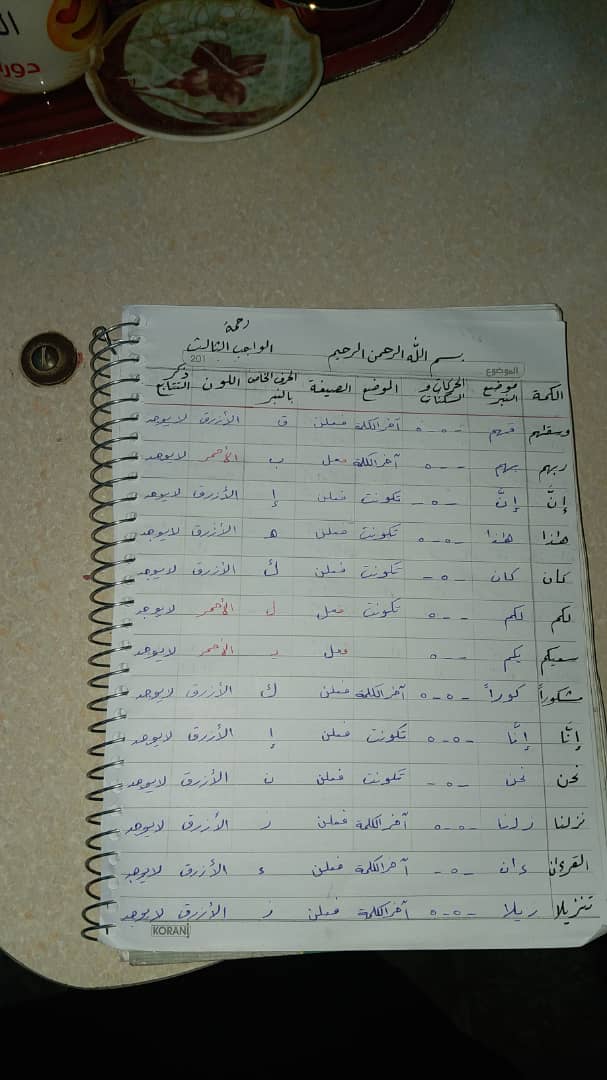 رحمة
بسم الله الرحمن الرحيم الواجب الثالث
الموضوع 201
الكلمة موضع النبر الحركات و السكنات الموضع الصيغة الحرف الخاص بالنبر اللون ذكر التتابع
وسقاهم قهم -ه-ه آخر الكلمة فعلن ق الأزرق لايوجد
ربهم بهم --ه آخر الكلمة فعل ب الأحمر لايوجد
إنَّ إنَّ -ه- تكونت فعلن إ الأزرق لايوجد
هذا هذا -ه-ه تكونت فعلن ه الأزرق لايوجد
كان كان -ه- تكونت فعلن ك الأزرق لايوجد
لكم لكم --ه تكونت فعل ل الأحمر لايوجد
سعيكم يكم --ه فعل يـ الأحمر لايوجد
مشكوراً كوراً -ه-ه آخر الكلمة فعلن ك الأزرق لايوجد
إنَّا إنَّا -ه-ه تكونت فعلن إ الأزرق لايوجد
نحن نحن -ه- تكونت فعلن ن الأزرق لايوجد
نزلنا زلنا -ه-ه آخر الكلمة فعلن ز الأزرق لايوجد
القرءان ءان -ه- آخر الكلمة فعلن ء الأزرق لايوجد
تنزيلا زيلا -ه-ه آخر الكلمة فعلن ز الأزرق لايوجد
KORAN